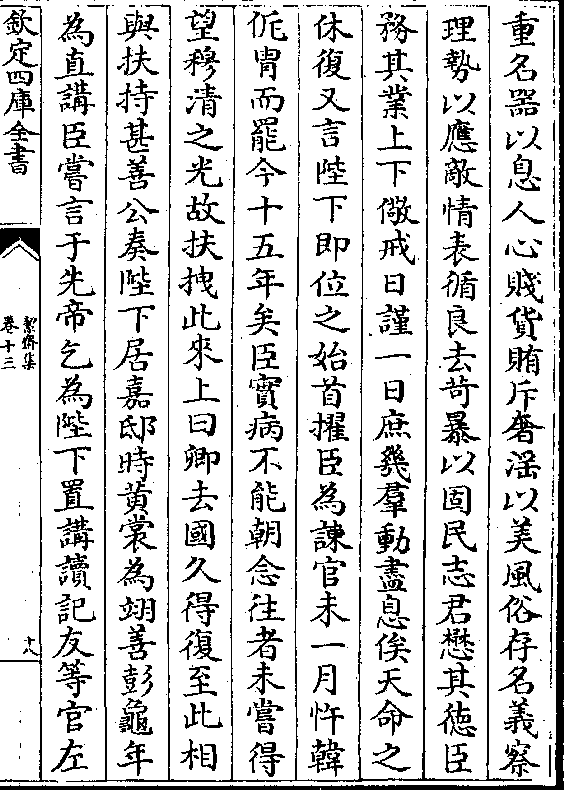 重名器以息人心賤貨賄斥奢滛以美風俗存名義察
理勢以應敵情表循良去苛暴以固民志君懋其徳臣
務其業上下儆戒日謹一日庶㡬羣動盡息俟天命之
休復又言陛下即位之始首擢臣為諌官未一月忤韓
侂胄而罷今十五年矣臣實病不能朝念往者未嘗得
望穆清之光故扶拽此來上曰卿去國久得復至此相
與扶持甚善公奏陛下居嘉邸時黄裳為翊善彭龜年
為直講臣嘗言于先帝乞為陛下置講讀記友等官左
欽定四庫全書
絜齋集
卷十三
十八